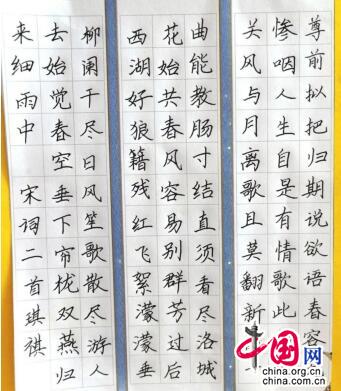 尊前拟把归期说欲语春容
惨咽人生自是有情痴此
关风与月离歌且莫翻新
曲能教肠寸结直须看尽洛城
花始共春风容易别群芳过后
西湖好狼籍残红飞絮濛濛垂
柳阑干尽日风笙歌散尽游人
去始觉春空垂下帘栊双燕归
来细雨中 宋词二首琪祺
中国网
china.org.cn
china.org.cn